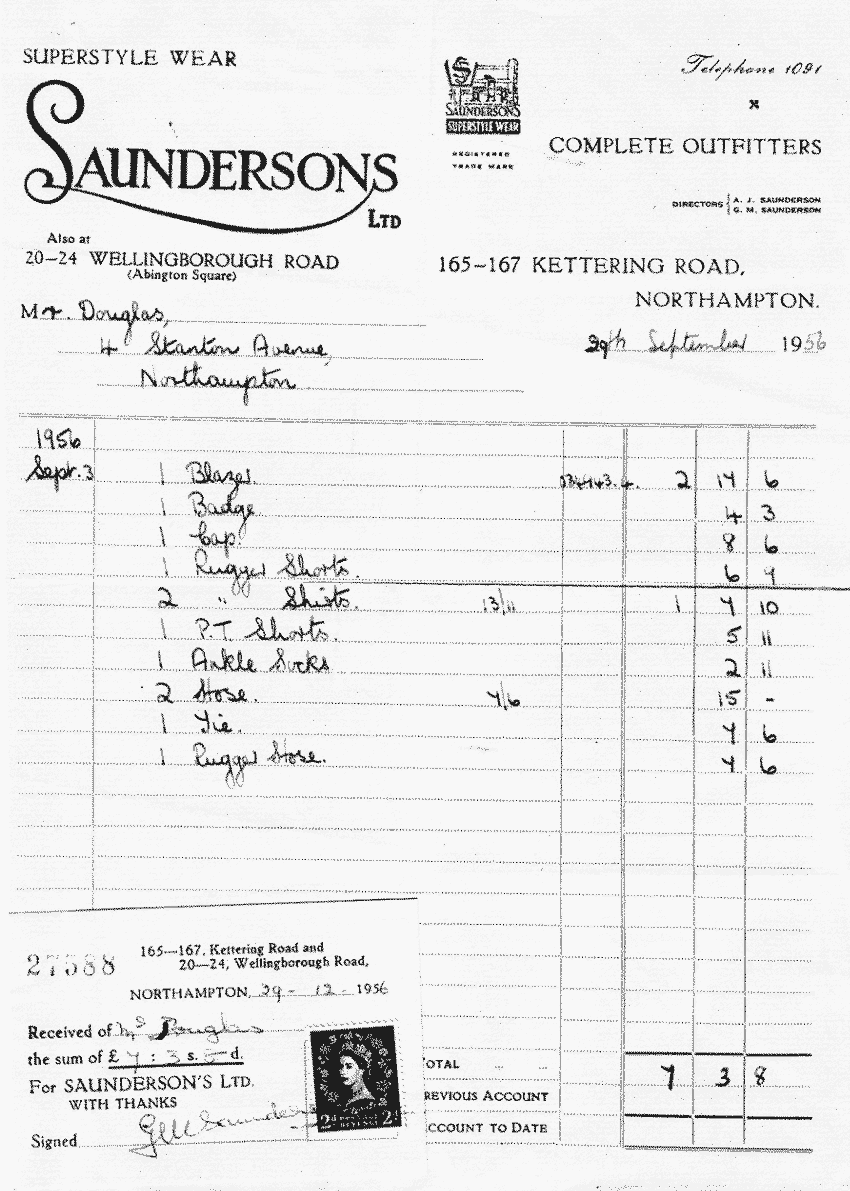 SUPERSTYLE WEAR
SAUNDERSONS
LTD
Also at
20-24 WELLINGBOROUGH ROAD
(Abington Square)
SAUNDERSONS
SUPERSTYLE WEAR
REGISTERED
TRADE MARK
Telephone 1091
COMPLETE OUTFITTERS
DIRECTORS { A. J. SAUNDERSON
G. M. SAUNDERSON
165-167 KETTERING ROAD,
NORTHAMPTON.
Mr. Douglas,
4 Stanton Avenue,
Northampton
29th September 1956
1956
Sept. 3 1 Blazer. 2 17 6
1 Badge 4 3
1 Cap. 8 6
1 Rugger Shorts. 6 9
2 " Shirts. 13/11 1 7 10
1 P.T. Shorts. 5 11
1 Ankle Socks 2 11
2 Hose. 7/6 15 -
1 Tie. 7 6
1 Rugger Hose. 7 6
OTAL 7 3 8
REVIOUS ACCOUNT
CCOUNT TO DATE
27588
165-167, Kettering Road and
20-24, Wellingborough Road,
NORTHAMPTON, 29 - 12 - 1956
Received of Mrs Douglas
the sum of £ 7 : 3 s. d.
For SAUNDERSON'S LTD.
WITH THANKS
Signed G M Saunderson
2d REVENUE 2d